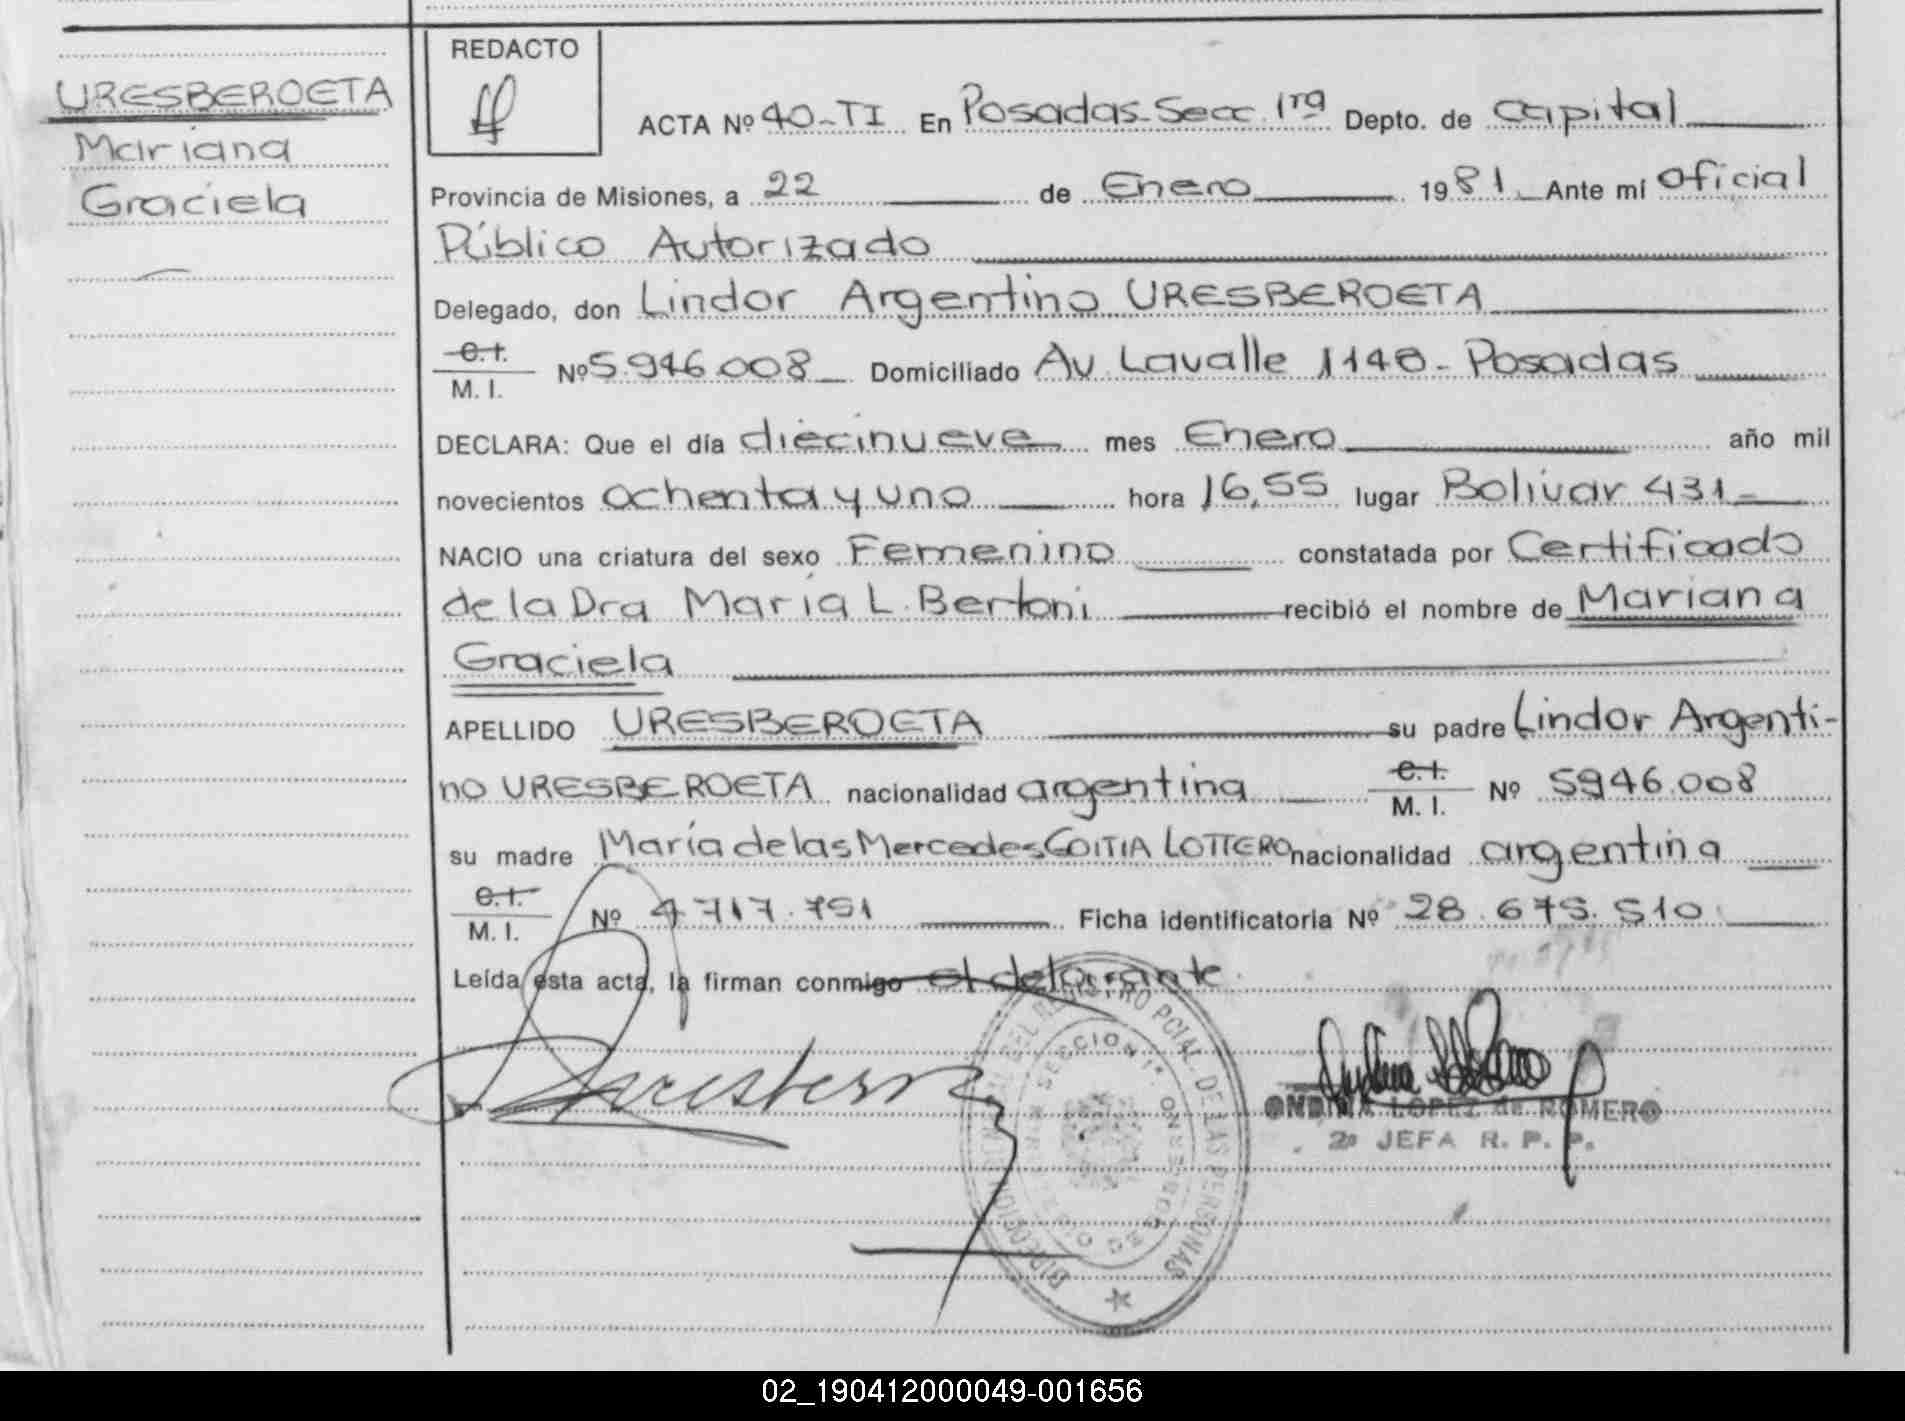 URESBEROETA
Mariana
Graciela
REDACTO
ACTA Nº 40-TI En Posadas-Secc. 1ra Depto. de Capital
Provincia de Misiones, a 22 de Enero 1981. Ante mí Oficial
Público Autorizado
Delegado, don Lindor Argentino URESBEROETA
C.I.
M. I. Nº 5.946.008 Domiciliado Av. Lavalle 1148 - Posadas
DECLARA: Que el día diecinueve mes Enero año mil
novecientos ochenta y uno hora 16,55 lugar Bolívar 431-
NACIO una criatura del sexo Femenino constatada por Certificado
de la Dra María L. Bertoni recibió el nombre de Mariana
Graciela
APELLIDO URESBEROETA su padre Lindor Argenti-
no URESBEROETA nacionalidad argentina C.I. M. I. Nº 5946.008
su madre María de las Mercedes GOITIA LOTTERO nacionalidad argentina
C.I.
M. I. Nº 4717.751 Ficha identificatoria Nº 28.675.510
Leída esta acta, la firman conmigo el delarante.
DIRECCION GRAL DEL REGISTRO PCIAL. DE LAS PERSONAS
SECCION 1ª
ONDINA LOPEZ de ROMERO
2º JEFA R. P. P.
02_190412000049-001656